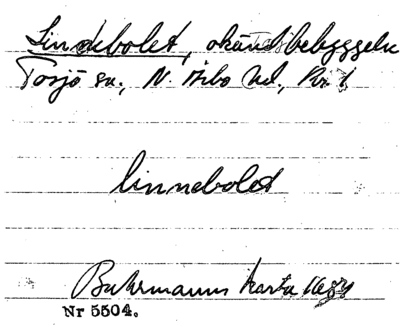 Linnebolet, okänd bebyggelse
Tosjö sn., N. Åsbo hd., Kr. l
linnebolet
Buhrmanns karta 1684
Nr 5504.